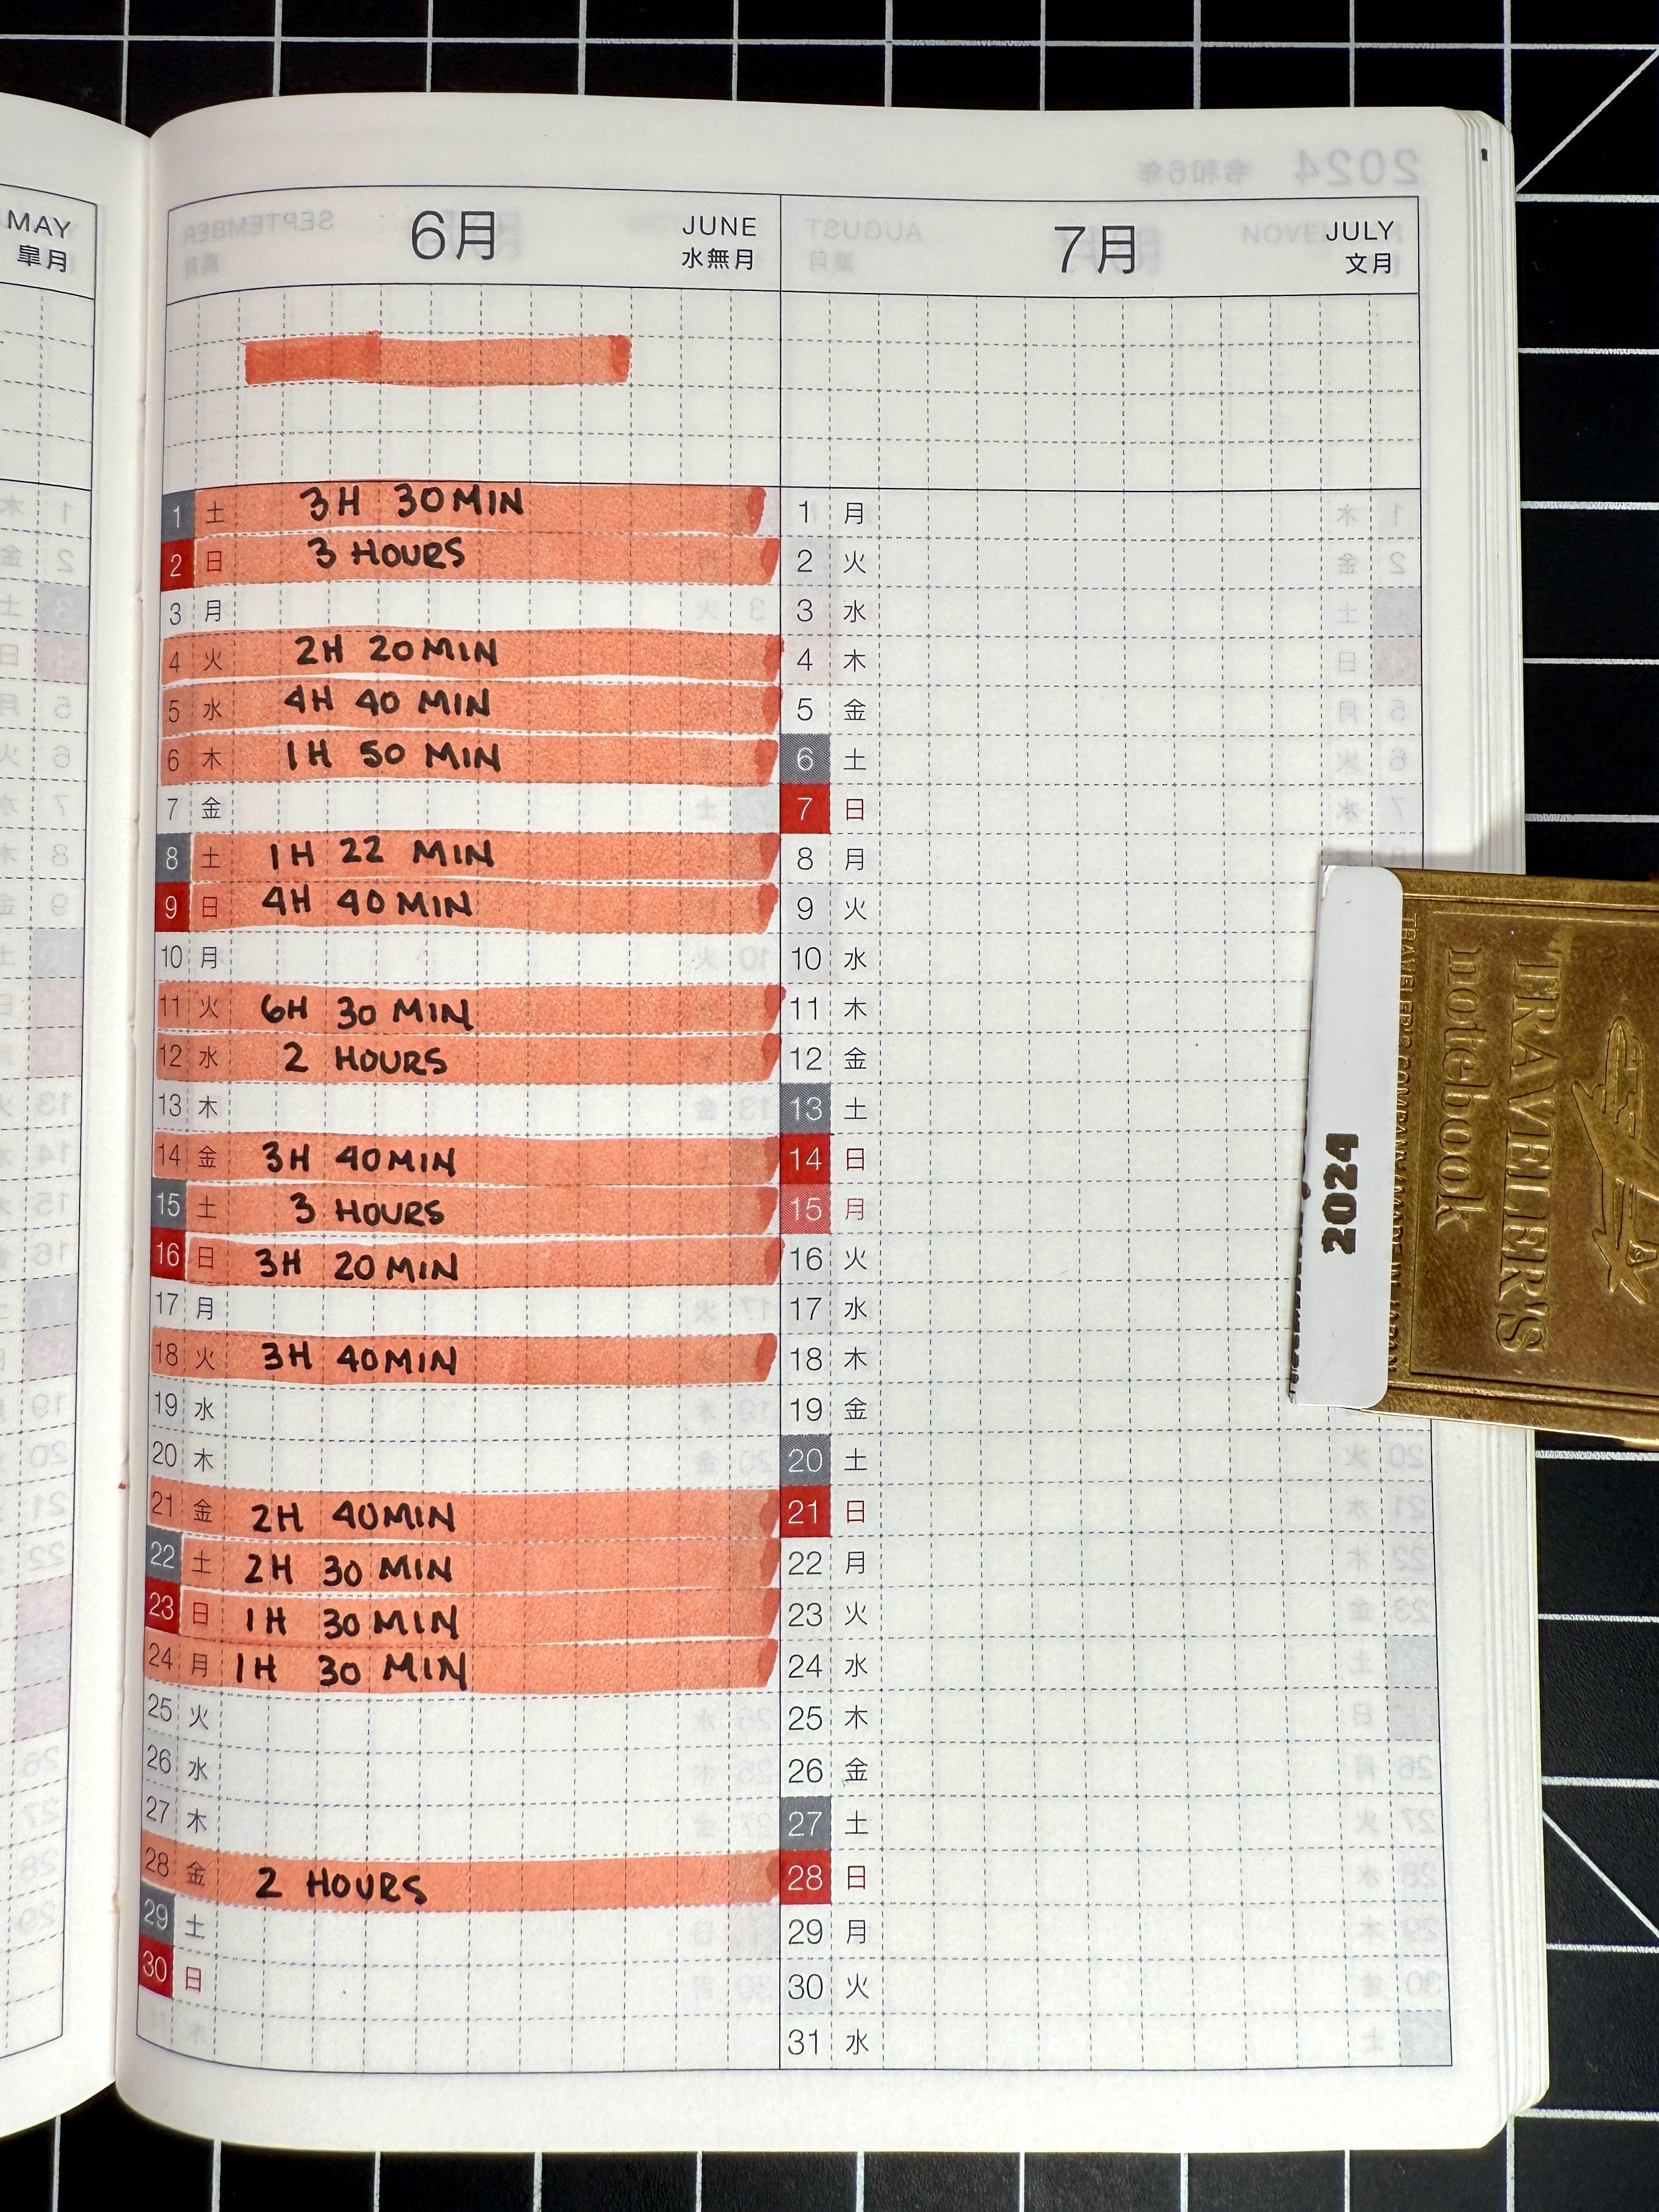 MAY
皐月
6月 JUNE
水無月
1 土 3H 30MIN
2 日 3 HOURS
3 月
4 火 2H 20MIN
5 水 4H 40 MIN
6 木 1H 50 MIN
7 金
8 土 1H 22 MIN
9 日 4H 40MIN
10 月
11 火 6H 30 MIN
12 水 2 HOURS
13 木
14 金 3H 40MIN
15 土 3 HOURS
16 日 3H 20MIN
17 月
18 火 3H 40MIN
19 水
20 木
21 金 2H 40MIN
22 土 2H 30 MIN
23 日 1H 30MIN
24 月 1H 30 MIN
25 火
26 水
27 木
28 金 2 HOURS
29 土
30 日
7月 JULY
文月
1 月
2 火
3 水
4 木
5 金
6 土
7 日
8 月
9 火
10 水
11 木
12 金
13 土
14 日
15 月
16 火
17 水
18 木
19 金
20 土
21 日
22 月
23 火
24 水
25 木
26 金
27 土
28 日
29 月
30 火
31 水
2024
TRAVELER'S
notebook
TRAVELER'S COMPANY MADE IN JAPAN